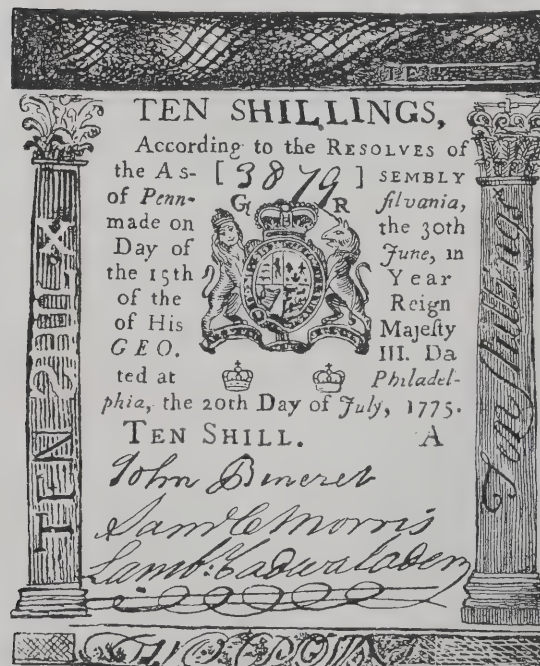 TE
TEN SHILLINGS,
According to the RESOLVES of
the As- [ 3879 ] SEMBLY
of Penn- G R ſilvania,
made on the 30th
Day of June, in
the 15th Year
of the Reign
of His Majeſty
GEO. III. Da
ted at Philadel-
phia, the 20th Day of July, 1775.
TEN SHILL. A
John Bineret
Saml C Morris
Lambt: Cadwalader
TEN SHILL
Ten ſhillings